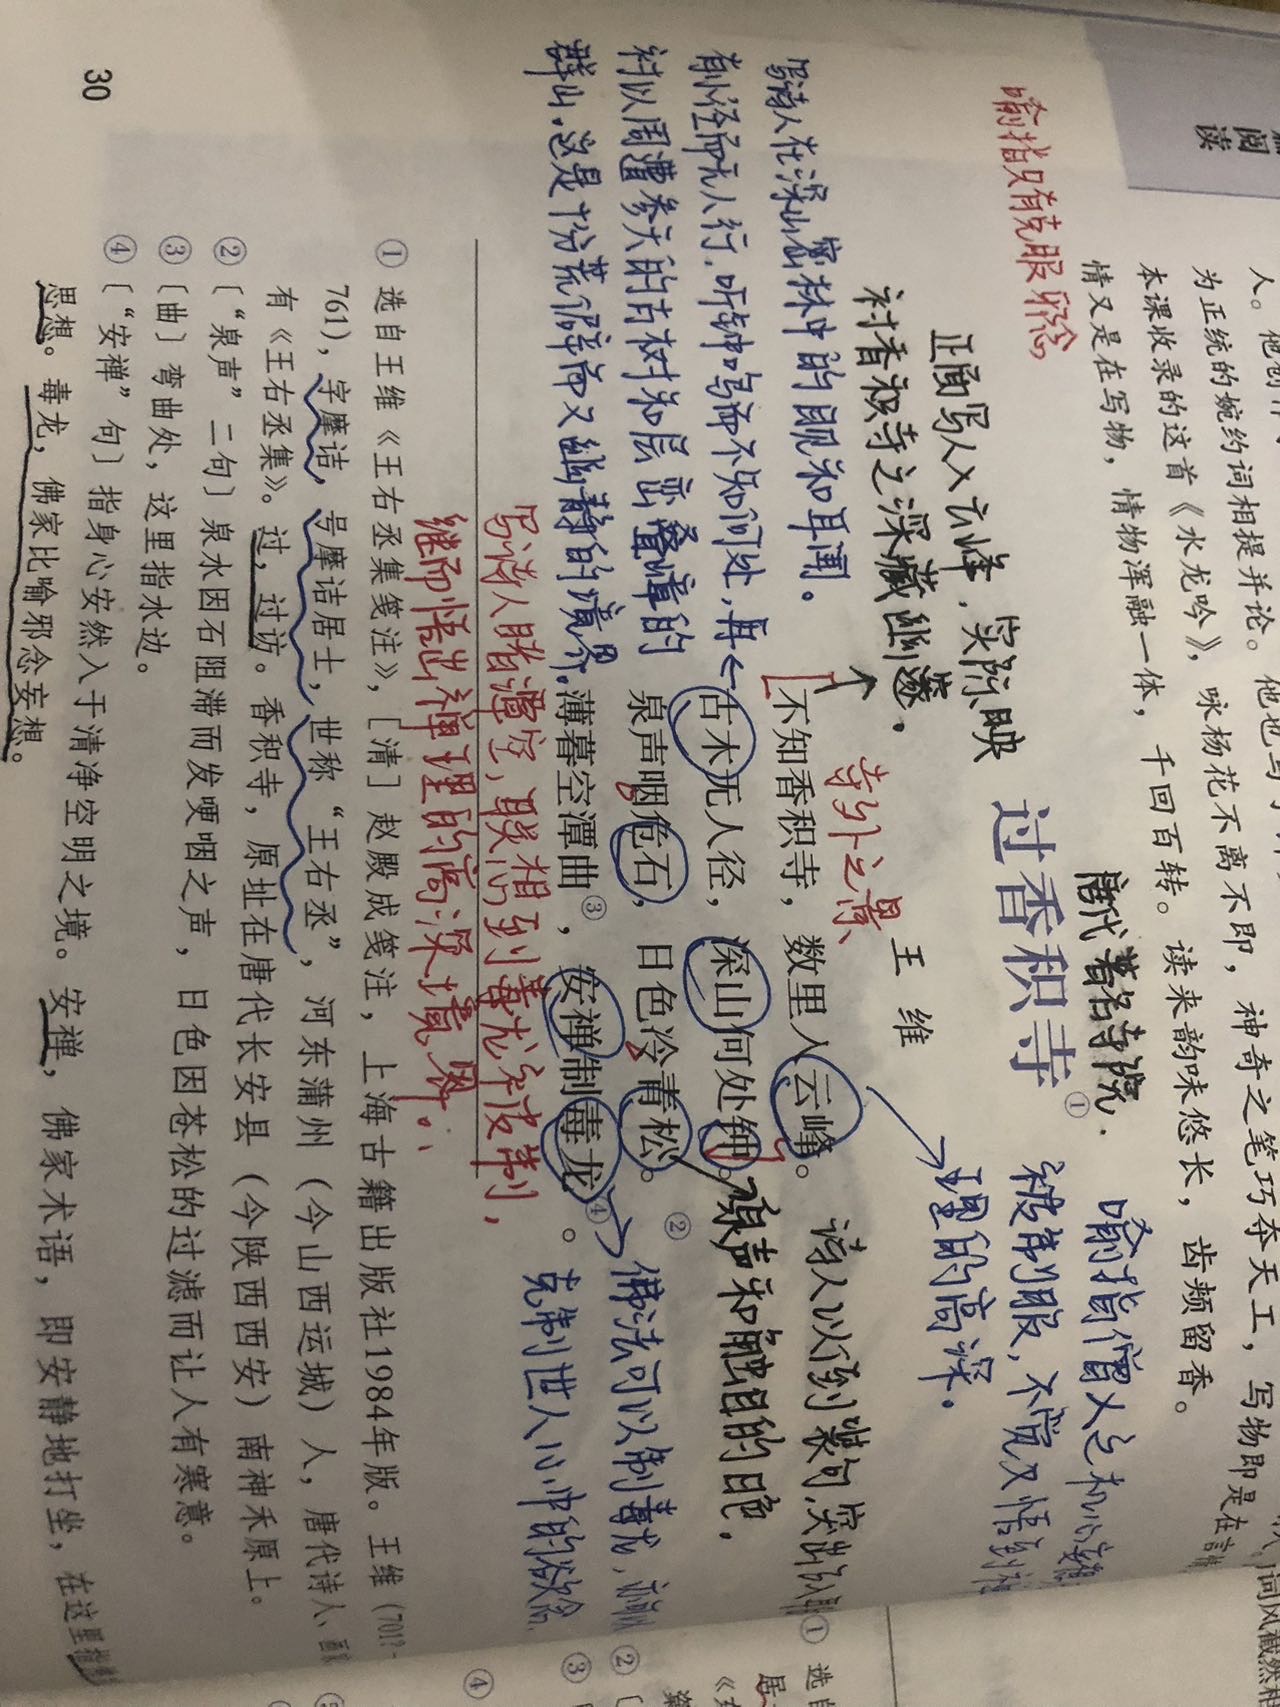 为正统的婉约词相提并论。他也写了
本课收录的这首《水龙吟》，咏杨花不离不即，神奇之笔巧夺天工，写物即是在言情
情又是在写物，情物浑融一体，千回百转。读来韵味悠长，齿颊留香。
阅读
喻指只有克服邪念
唐代著名寺院.
过香积寺①
喻指僧人之机心
被制服，不觉又悟到禅
理的高深.
正面写入云峰，实际映
衬香积寺之深藏幽邃.
王 维
寺外之景
写诗人在深山密林中的目见和耳闻.
有小径而无人行，听钟鸣而不知何处，再
衬以周遭参天的古树和层峦叠嶂的
群山.这是十分荒僻而又幽静的境界.
不知香积寺，数里入云峰。
古木无人径，深山何处钟。
泉声咽危石，日色冷青松。②
薄暮空潭曲③，安禅制毒龙④。
诗人以倒装句，突出
泉声和触目的日色，
佛法可以制毒龙，亦可以
克制世人心中的欲念.
写诗人睹潭空，联想到毒龙被制，
继而悟出禅理的高深境界.
① 选自王维《王右丞集笺注》，［清］赵殿成笺注，上海古籍出版社1984年版。王维（701?-
761），字摩诘，号摩诘居士，世称“王右丞”，河东蒲州（今山西运城）人，唐代诗人、
有《王右丞集》。过，过访。香积寺，原址在唐代长安县（今陕西西安）南神禾原上。
② 〔“泉声”二句〕泉水因石阻滞而发哽咽之声，日色因苍松的过滤而让人有寒意。
③ 〔曲〕弯曲处，这里指水边。
④ 〔“安禅”句〕指身心安然入于清净空明之境。安禅，佛家术语，即安静地打坐，在这里指
思想。毒龙，佛家比喻邪念妄想。
30
① 选自
②
③
④